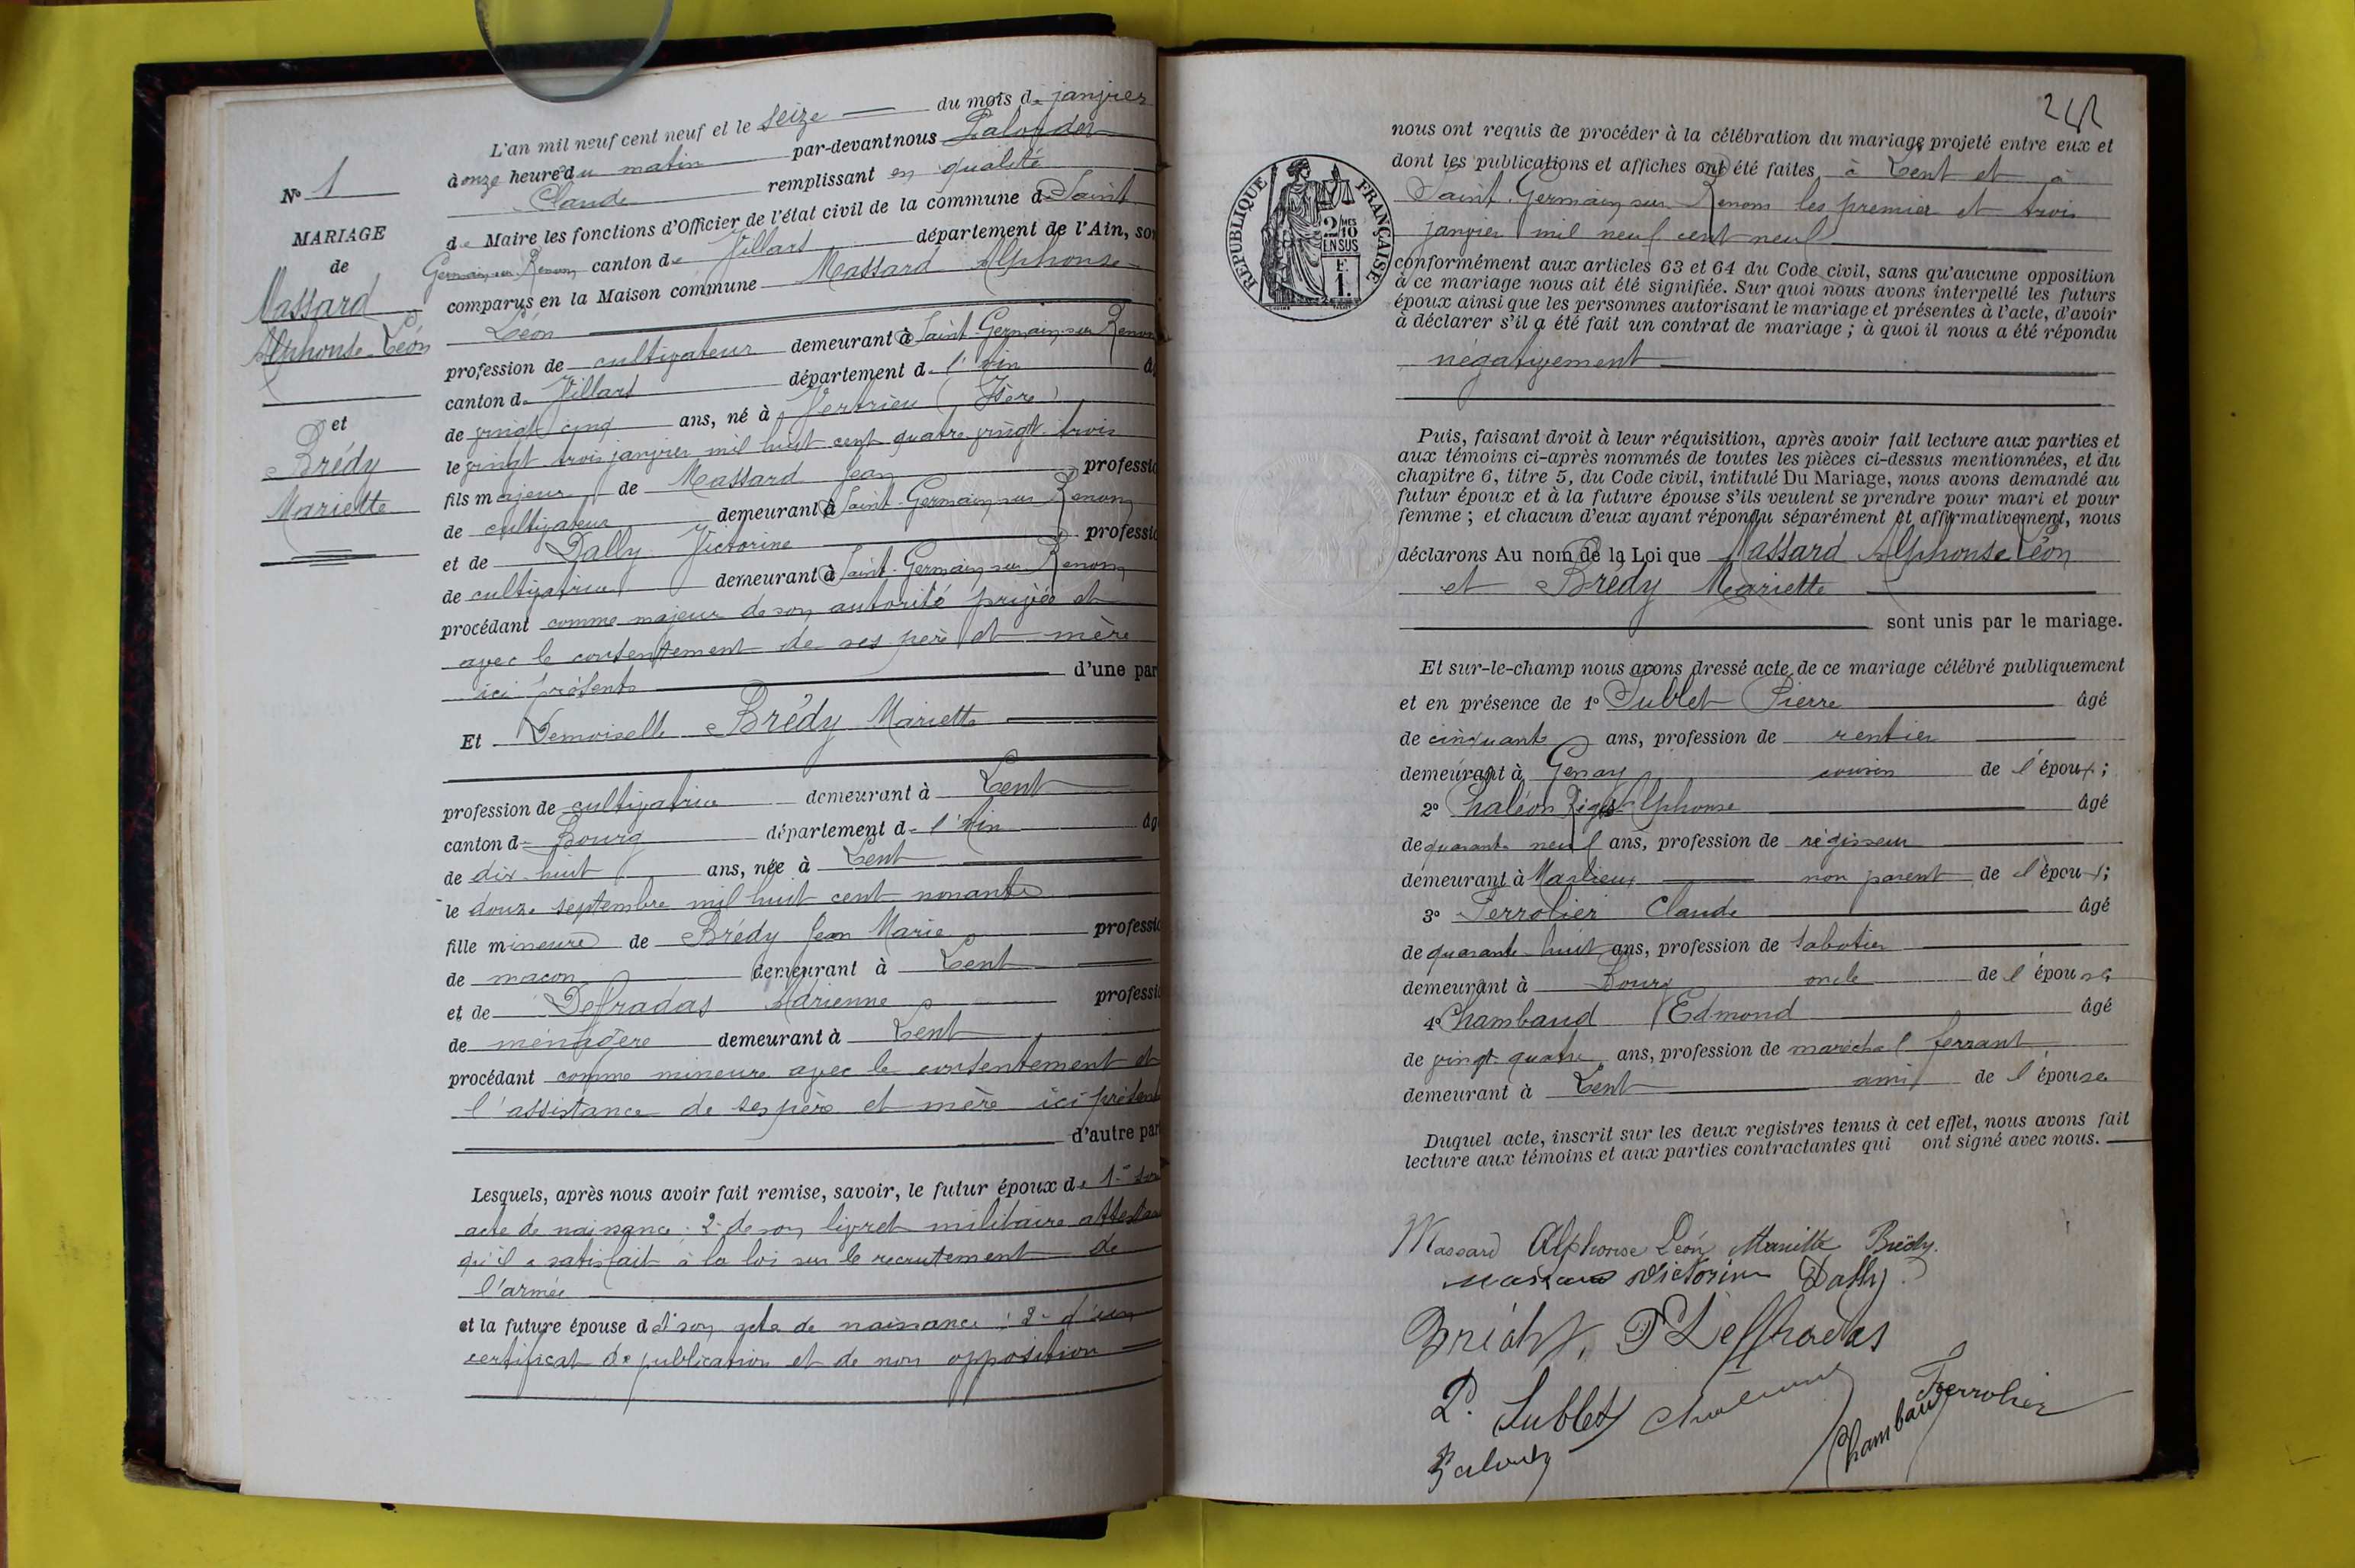 N° 1
MARIAGE
de
Massard
Alphonse Léon
et
Brédy
Mariette
L'an mil neuf cent neuf et le seize du mois de janvier
à onze heure du matin par-devant nous
Claude remplissant en qualité
de Maire les fonctions d'Officier de l'état civil de la commune d Saint
Germain sur Renon canton de Villars département de l'Ain, so
comparus en la Maison commune Massard Alphonse
Léon
profession de cultivateur demeurant à Saint-Germain sur Renon
canton de Villars département de l'Ain â
de vingt cinq ans, né à Vertrieu (Isère)
le vingt trois janvier mil huit cent quatre vingt trois
fils majeur de Massard Jean professi
de cultivateur demeurant à Saint-Germain sur Renon
et de Dally Victorine professi
de cultivatrice demeurant à Saint-Germain sur Renon
procédant comme majeur de son autorité privée et
avec le consentement de ses père et mère
ici présents d'une par
Et Demoiselle Brédy Mariette
profession de cultivatrice demeurant à Lent
canton de Bourg département de l'Ain âg
de dix huit ans, née à Lent
le douze septembre mil huit cent nonante
fille mineure de Brédy Jean Marie professi
de maçon demeurant à Lent
et de Defradas Adrienne professi
de ménagère demeurant à Lent
procédant comme mineure avec le consentement et
l'assistance de ses père et mère ici présents
d'autre par
Lesquels, après nous avoir fait remise, savoir, le futur époux de 1° son
acte de naissance : 2° de son livret militaire attestan
qu'il a satisfait à la loi sur le recrutement de
l'armée
et la future épouse d 1° son acte de naissance : 2° d'un
certificat de publication et de non opposition
242
nous ont requis de procéder à la célébration du mariage projeté entre eux et
dont les publications et affiches ont été faites à Lent et à
Saint-Germain sur Renon les premier et trois
janvier mil neuf cent neuf
RÉPUBLIQUE FRANÇAISE
2/10 MES
EN SUS
F.
1.
conformément aux articles 63 et 64 du Code civil, sans qu'aucune opposition
à ce mariage nous ait été signifiée. Sur quoi nous avons interpellé les futurs
époux ainsi que les personnes autorisant le mariage et présentes à l'acte, d'avoir
à déclarer s'il a été fait un contrat de mariage ; à quoi il nous a été répondu
négativement
Puis, faisant droit à leur réquisition, après avoir fait lecture aux parties et
aux témoins ci-après nommés de toutes les pièces ci-dessus mentionnées, et du
chapitre 6, titre 5, du Code civil, intitulé Du Mariage, nous avons demandé au
futur époux et à la future épouse s'ils veulent se prendre pour mari et pour
femme ; et chacun d'eux ayant répondu séparément et affirmativement, nous
déclarons Au nom de la Loi que Massard Alphonse Léon
et Brédy Mariette
sont unis par le mariage.
Et sur-le-champ nous avons dressé acte de ce mariage célébré publiquement
et en présence de 1° Sublet Pierre âgé
de cinquante ans, profession de rentier
demeurant à Genay cousin de l'époux ;
2° Chaléon Régis Alphonse âgé
de quarante neuf ans, profession de régisseur
demeurant à Marlieux non parent de l'époux ;
3° Ferrolier Claude âgé
de quarante huit ans, profession de sabotier
demeurant à Bourg oncle de l'épouse
4° Chambaud Edmond âgé
de vingt quatre ans, profession de maréchal ferrant
demeurant à Lent ami de l'épouse
Duquel acte, inscrit sur les deux registres tenus à cet effet, nous avons fait
lecture aux témoins et aux parties contractantes qui ont signé avec nous.
Massard Alphonse Léon Mariette Brédy
Victorine Dally
Deffradas
P. Sublet
Ferrolier
Chambaud